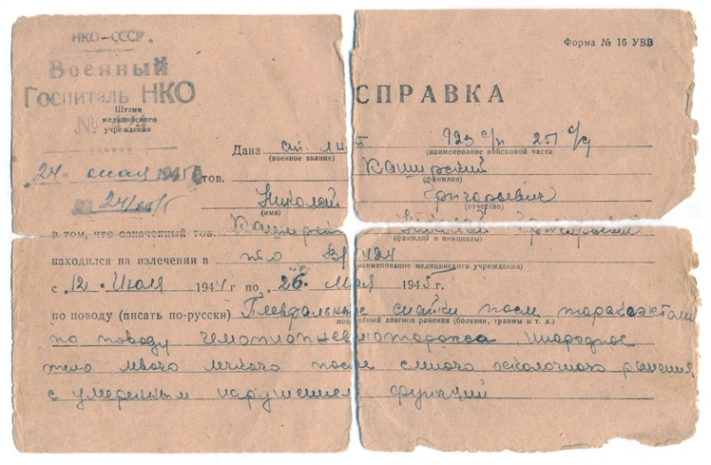 НКО–СССР.
Форма № 16 УВВ
Военный
Госпиталь НКО
СПРАВКА
№
Штамп
медицинского
учреждения
Дана ст. лит 923 с/п 251 с/д
(военное звание) (наименование войсковой части)
24 мая 194 тов. Каширский
(фамилия)
Николай Григорьевич
(имя) (отчество)
в том, что означенный тов.
(фамилия и инициалы)
находился на излечении в
(наименование медицинского учреждения)
с 12 Июля 1944 г по 26 мая 1945 г.
по поводу (писать по-русски) Плевральные спайки после
подробный диагноз ранения (болезни, травмы и т. д.)
по поводу инородное
тело левого легкого после слепого осколочного ранения
с умеренным нарушением функций